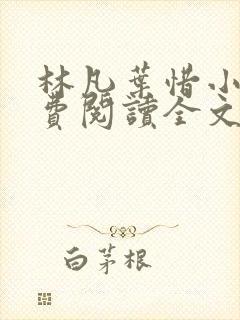 林凡葉惜小
費閱讀全文
白茅根